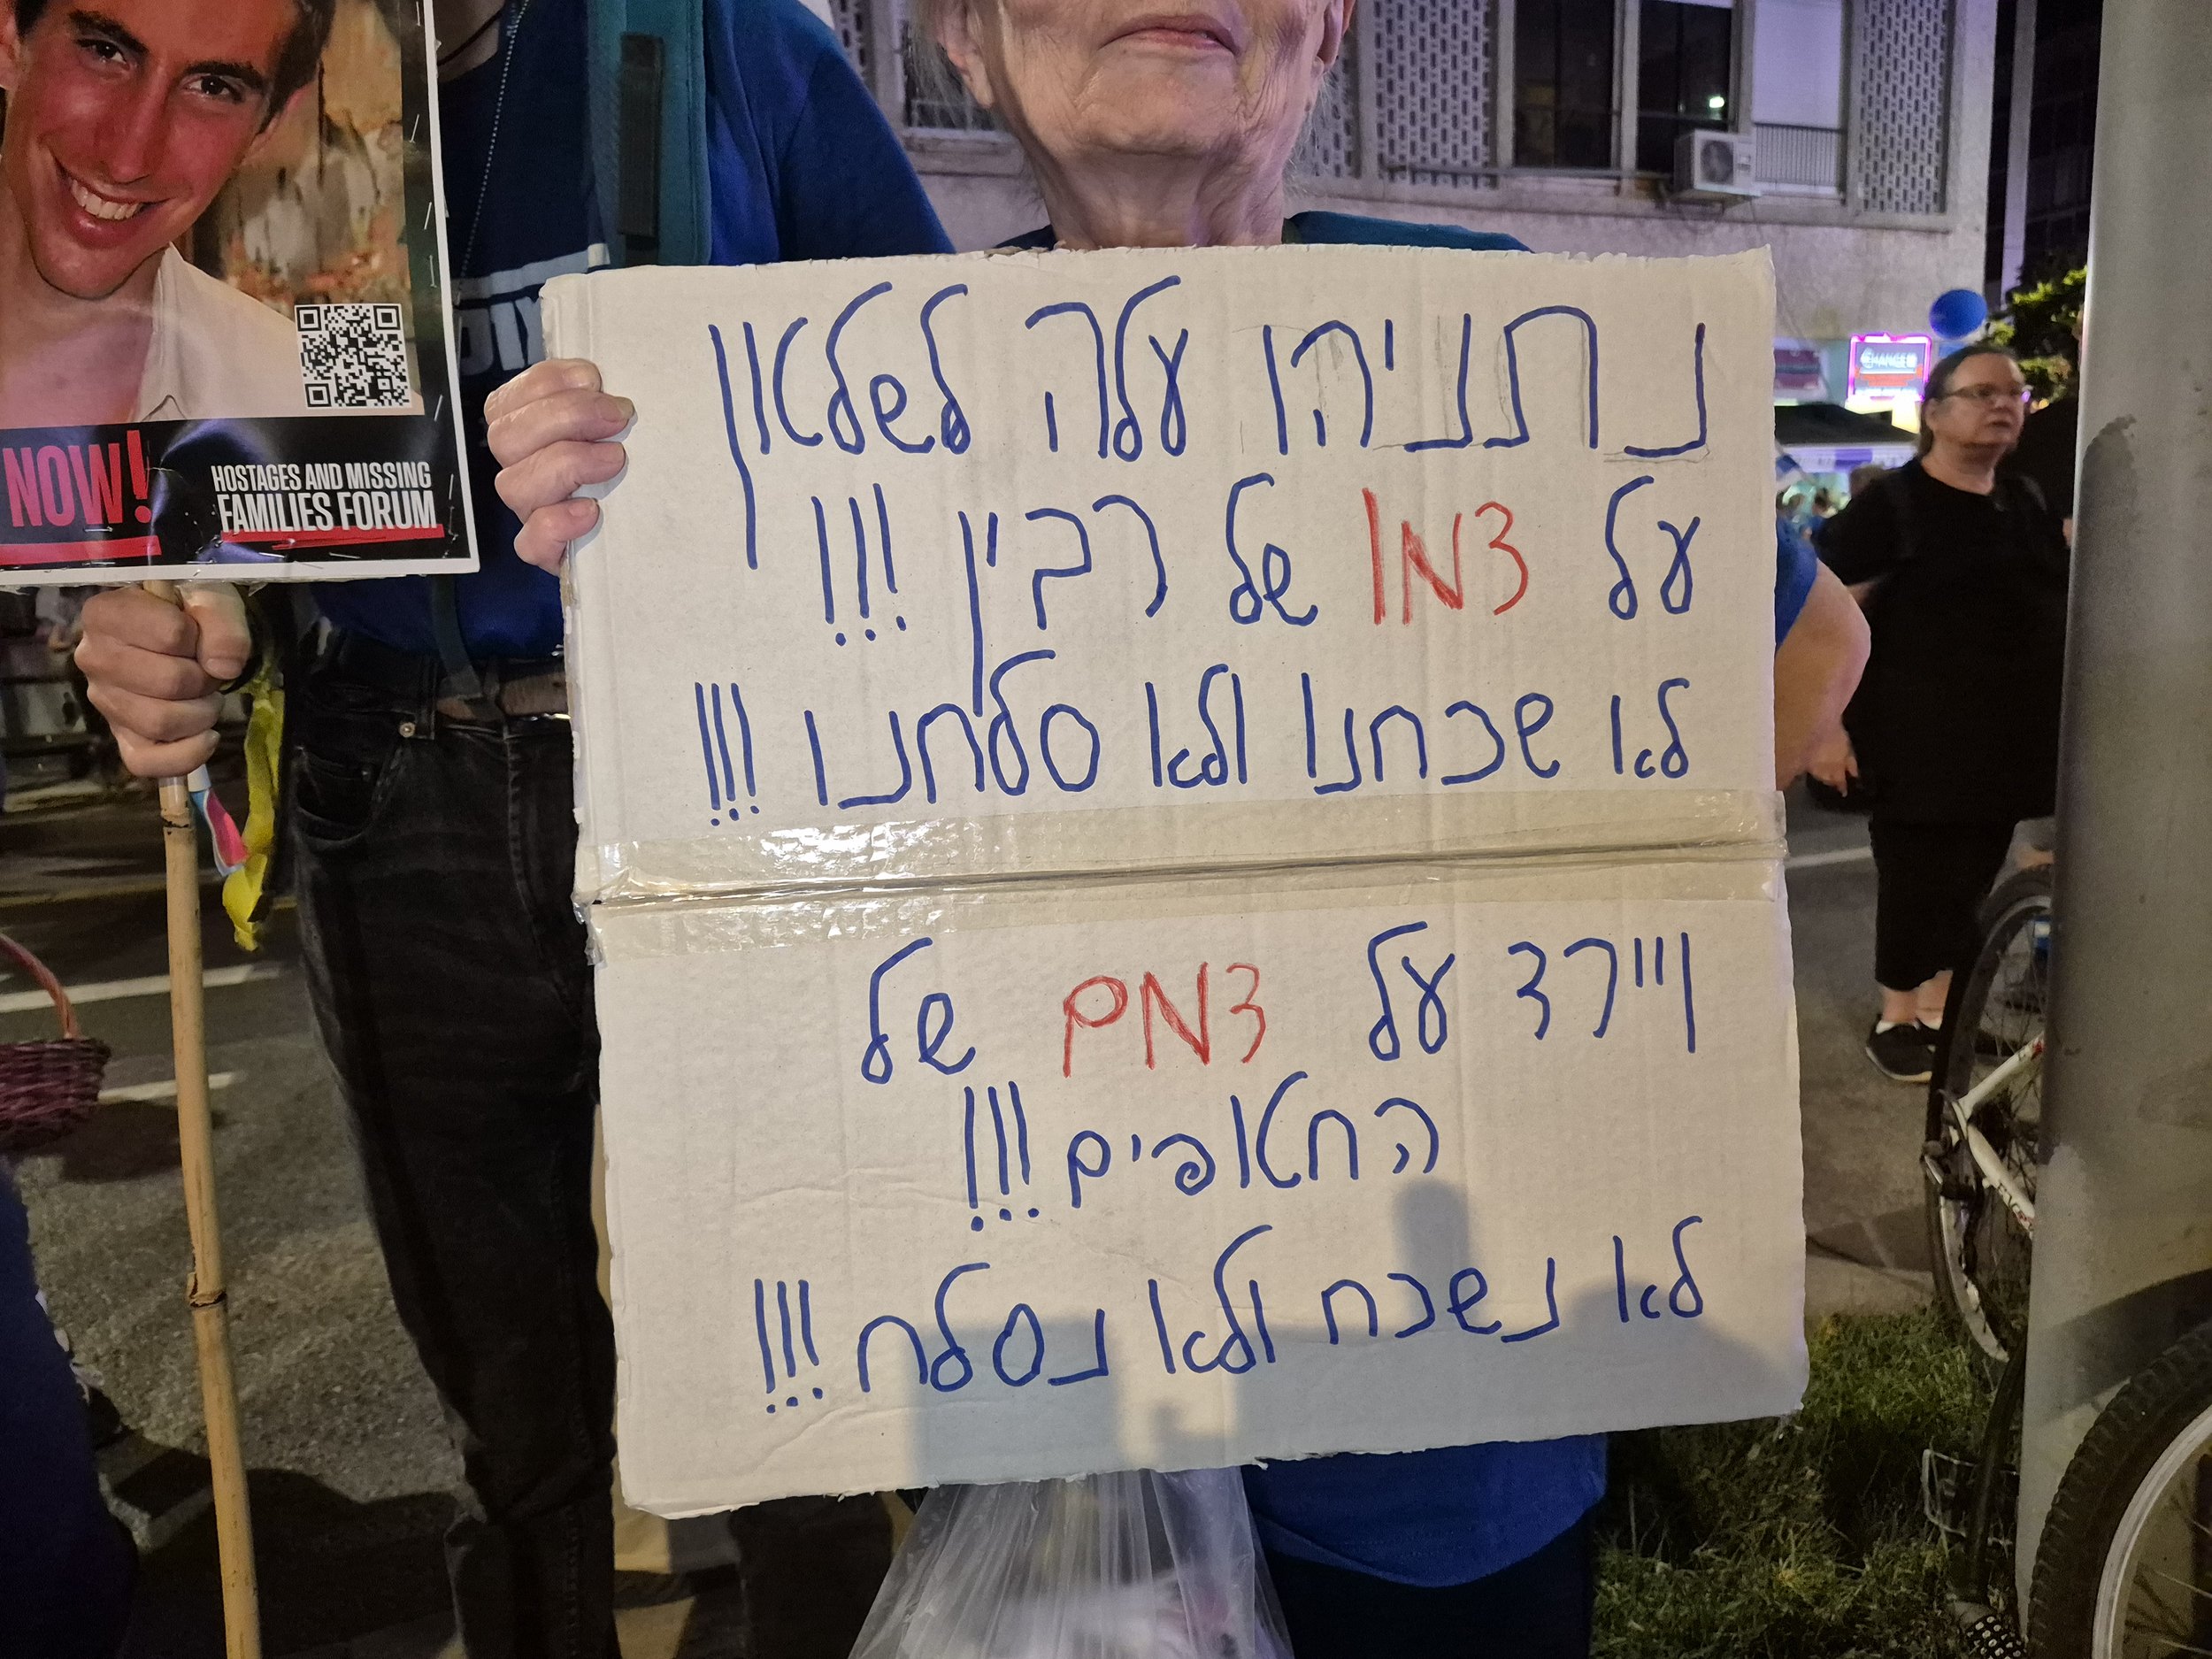 NOW!
HOSTAGES AND MISSING
FAMILIES FORUM
נתניהו עלה לשלטון
על דמו של רבין !!!
לא שכחנו ולא סלחנו !!!
ויירד על דמם של
החטופים !!!
לא נשכח ולא נסלח !!!
CHANGE